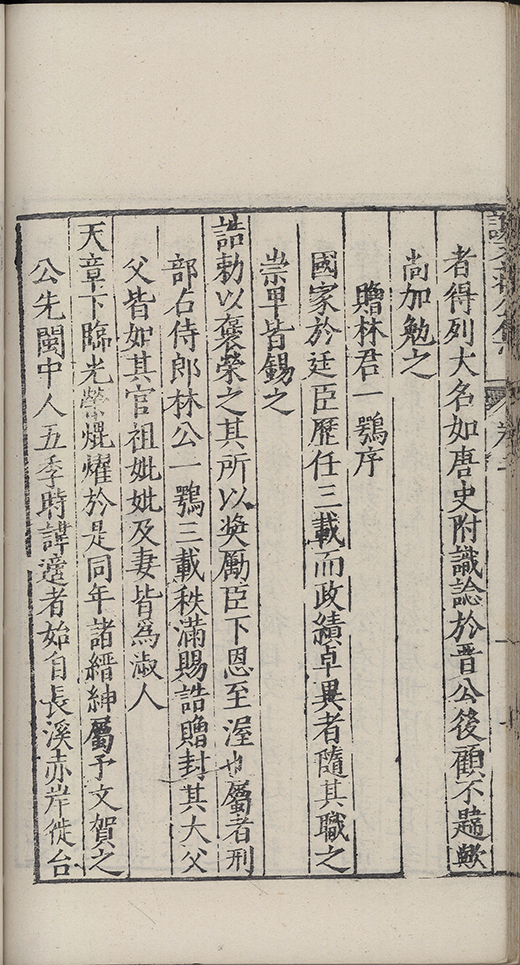 者得列大名如唐史附識諗於晋公後顧不韙歟
尚加勉之
贈林君一鶚序
國家於廷臣歷任三載而政績卓異者隨其職之
崇卑皆錫之
誥勅以褒榮之其所以奬勵臣下恩至渥也屬者刑
部右侍郎林公一鶚三載秩滿賜誥贈封其大父
父皆如其官祖妣妣及妻皆為淑人
天章下臨光榮焜燿於是同年諸縉紳屬予文賀之
公先閩中人五季時諱邍者始自長溪赤岸徙台